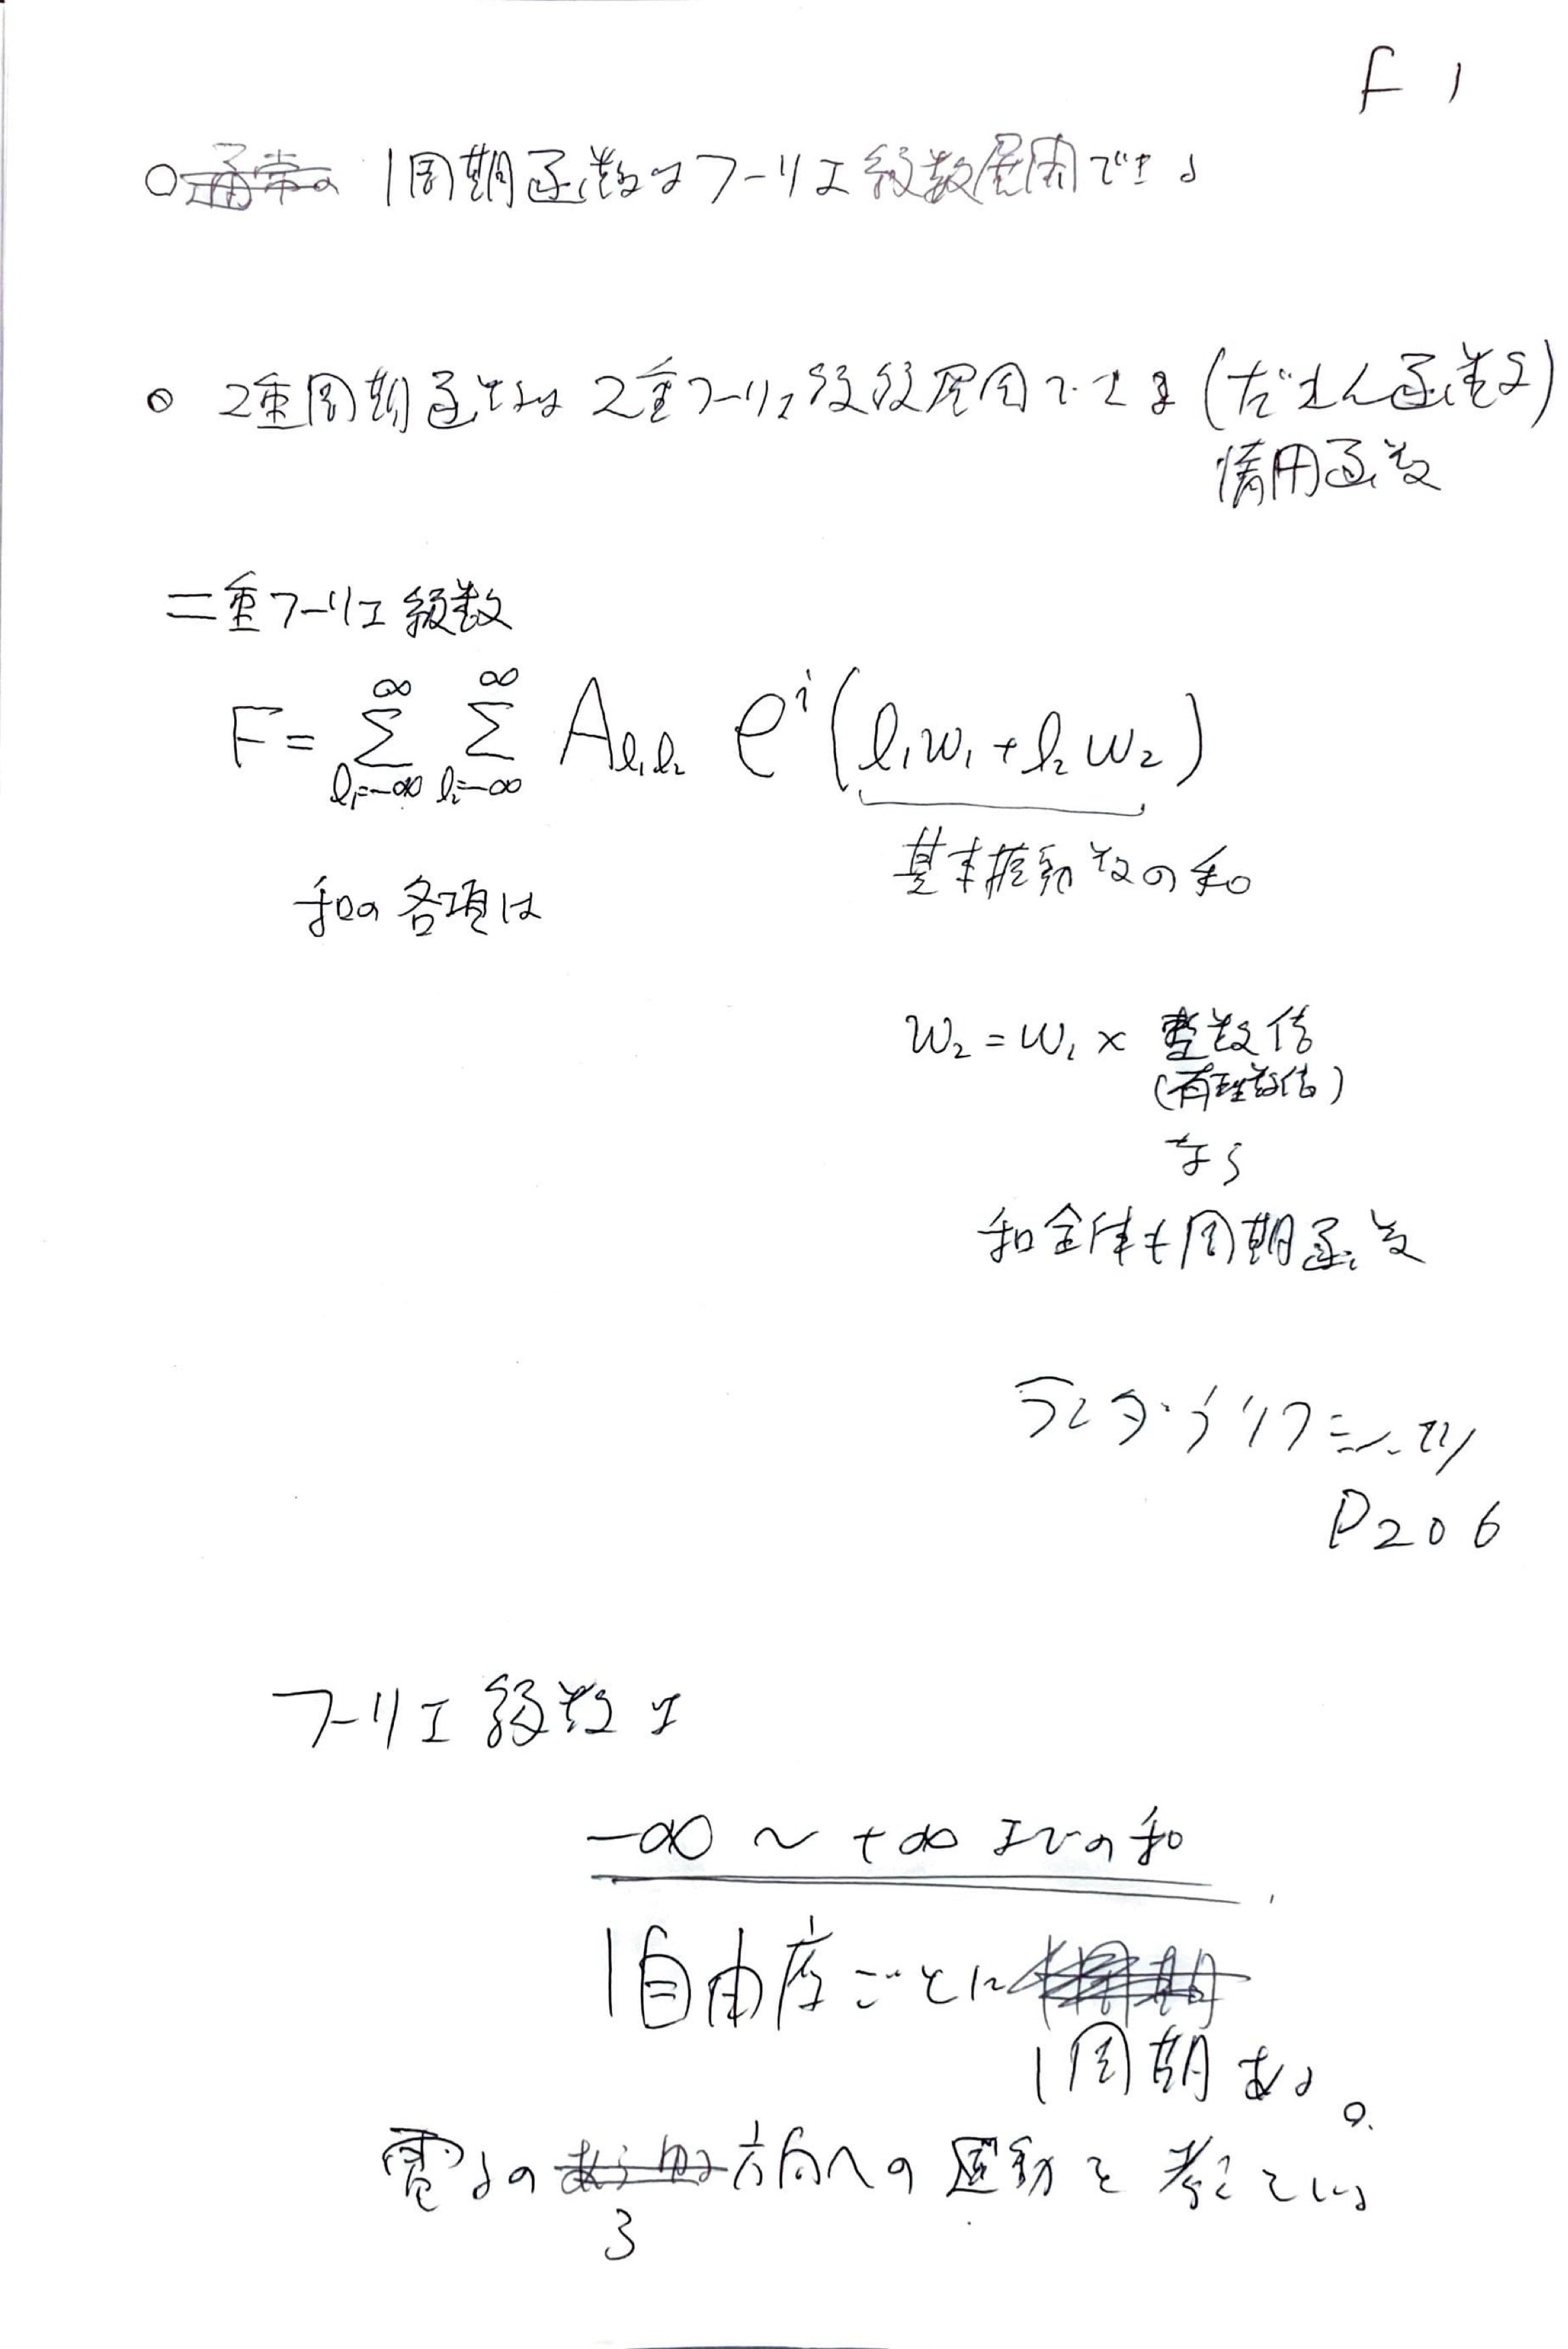 F 1
○ 通常の 1周期函数はフーリエ級数展開できる
○ 2重周期函数は2重フーリエ級数展開できる (だえん函数)
楕円函数
二重フーリエ級数
F = Σ_{l₁=-∞}^{∞} Σ_{l₂=-∞}^{∞} A_{l₁l₂} e^{i}(l₁w₁+l₂w₂)
基本振動数の和
和の各項は
w₂ = w₁ × 整数倍
(有理数倍)
なら
和全体も周期函数
ランダウリフシッツ
P206
フーリエ級数は
-∞ ~ +∞ までの和
1自由度ごとに
1周期ある。
電子の 方向への運動を考えている
3